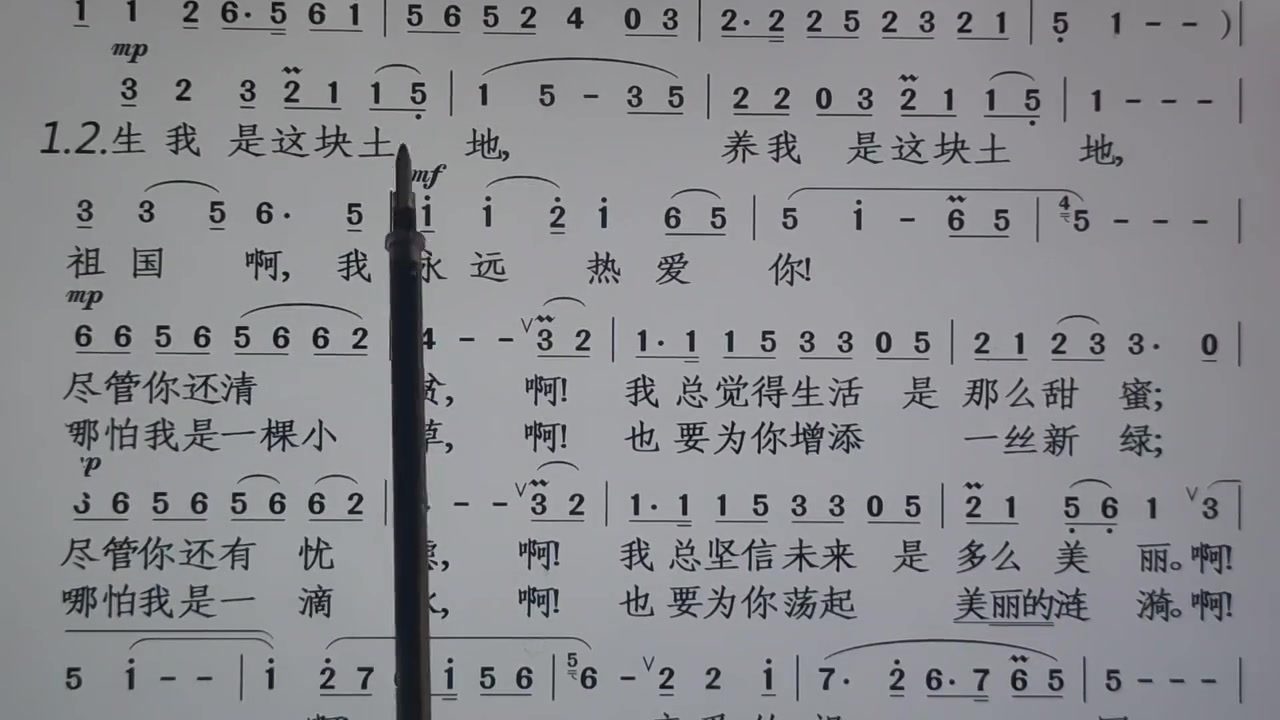 1 1 2 6· 5 6 1 | 5 6 5 2 4 0 3 | 2· 2 2 5 2 3 2 1 | 5 1 - - ) |
mp
3 2 3 2 1 1 5 | 1 5 - 3 5 | 2 2 0 3 2 1 1 5 | 1 - - - |
1.2.生 我 是这块土 地, 养我 是这块土 地,
mf
3 3 5 6· 5 i i 2 i 6 5 | 5 i - 6 5 | 4 5 - - - |
祖 国 啊, 我 永 远 热 爱 你!
mp
6 6 5 6 5 6 6 2 4 - - ∨ 3 2 | 1· 1 1 5 3 3 0 5 | 2 1 2 3 3· 0 |
尽管你还清 贫, 啊! 我 总觉得生活 是 那么甜 蜜;
哪怕我是一棵小 草, 啊! 也 要为你增添 一丝新 绿;
p
6 5 6 5 6 6 2 | - - ∨ 3 2 | 1· 1 1 5 3 3 0 5 | 2 1 5 6 1 ∨ 3 |
尽管你还有 忧 虑, 啊! 我 总坚信未来 是 多么 美 丽。啊!
哪怕我是一 滴 水, 啊! 也 要为你荡起 美丽的涟 漪。啊!
5 i - - | i 2 7 i 5 6 | 5 6 - ∨ 2 2 i | 7· 2 6· 7 6 5 | 5 - - - |